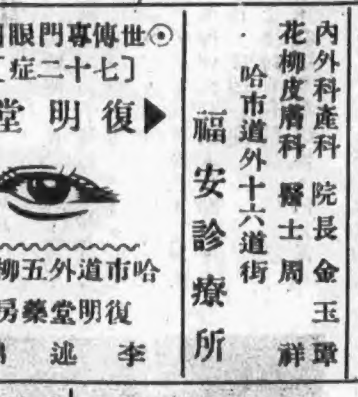 內外科產科 院長 金玉璋
花柳皮膚科 醫士 周祥
哈市道外十六道街
福安診療所
◉世傳專門眼
[七十二症]
▶復明堂
哈市道外五柳
復明堂藥房
李述